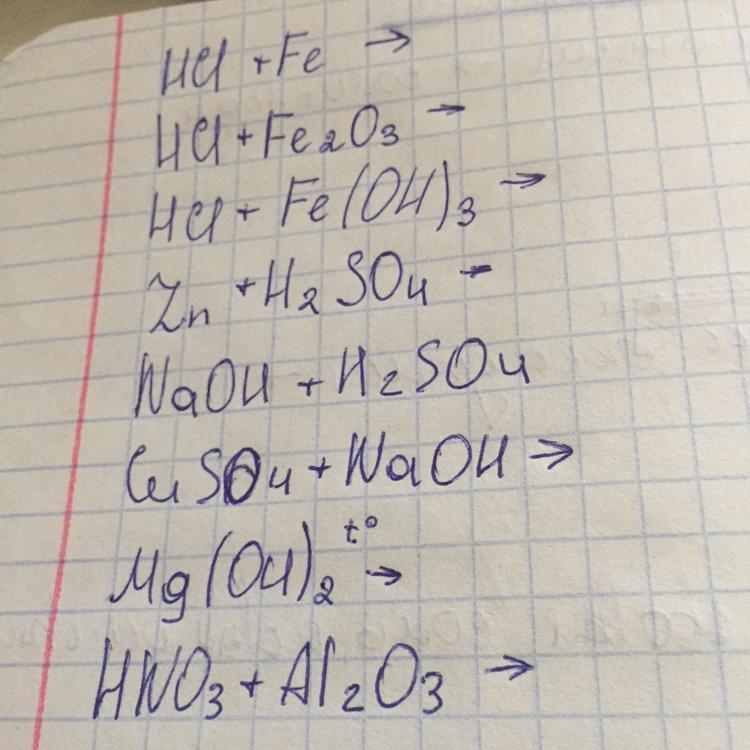 HCl + Fe →
HCl + Fe₂O₃ →
HCl + Fe(OH)₃ →
Zn + H₂SO₄ →
NaOH + H₂SO₄
CuSO₄ + NaOH →
Mg(OH)₂ t° →
HNO₃ + Al₂O₃ →